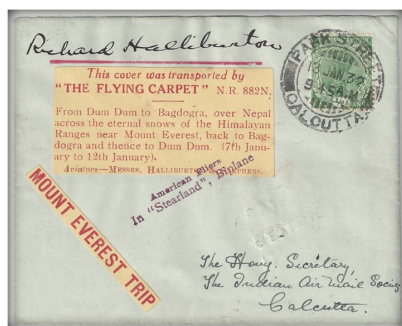 Richard Halliburton
This cover was transported by
"THE FLYING CARPET" N.R. 882N.
From Dum Dum to Bagdogra, over Nepal
across the eternal snows of the Himalayan
Ranges near Mount Everest, back to Bag-
dogra and thence to Dum Dum. (7th Janu-
ary to 12th January).
Aviators—MESSRS. HALLIBURTON &
PARK STREET
JAN. 32
CALCUTTA
American Fliers
In "Stearland", Biplane
MOUNT EVEREST TRIP
The Hony. Secretary,
The Indian Air Mail Society
Calcutta.